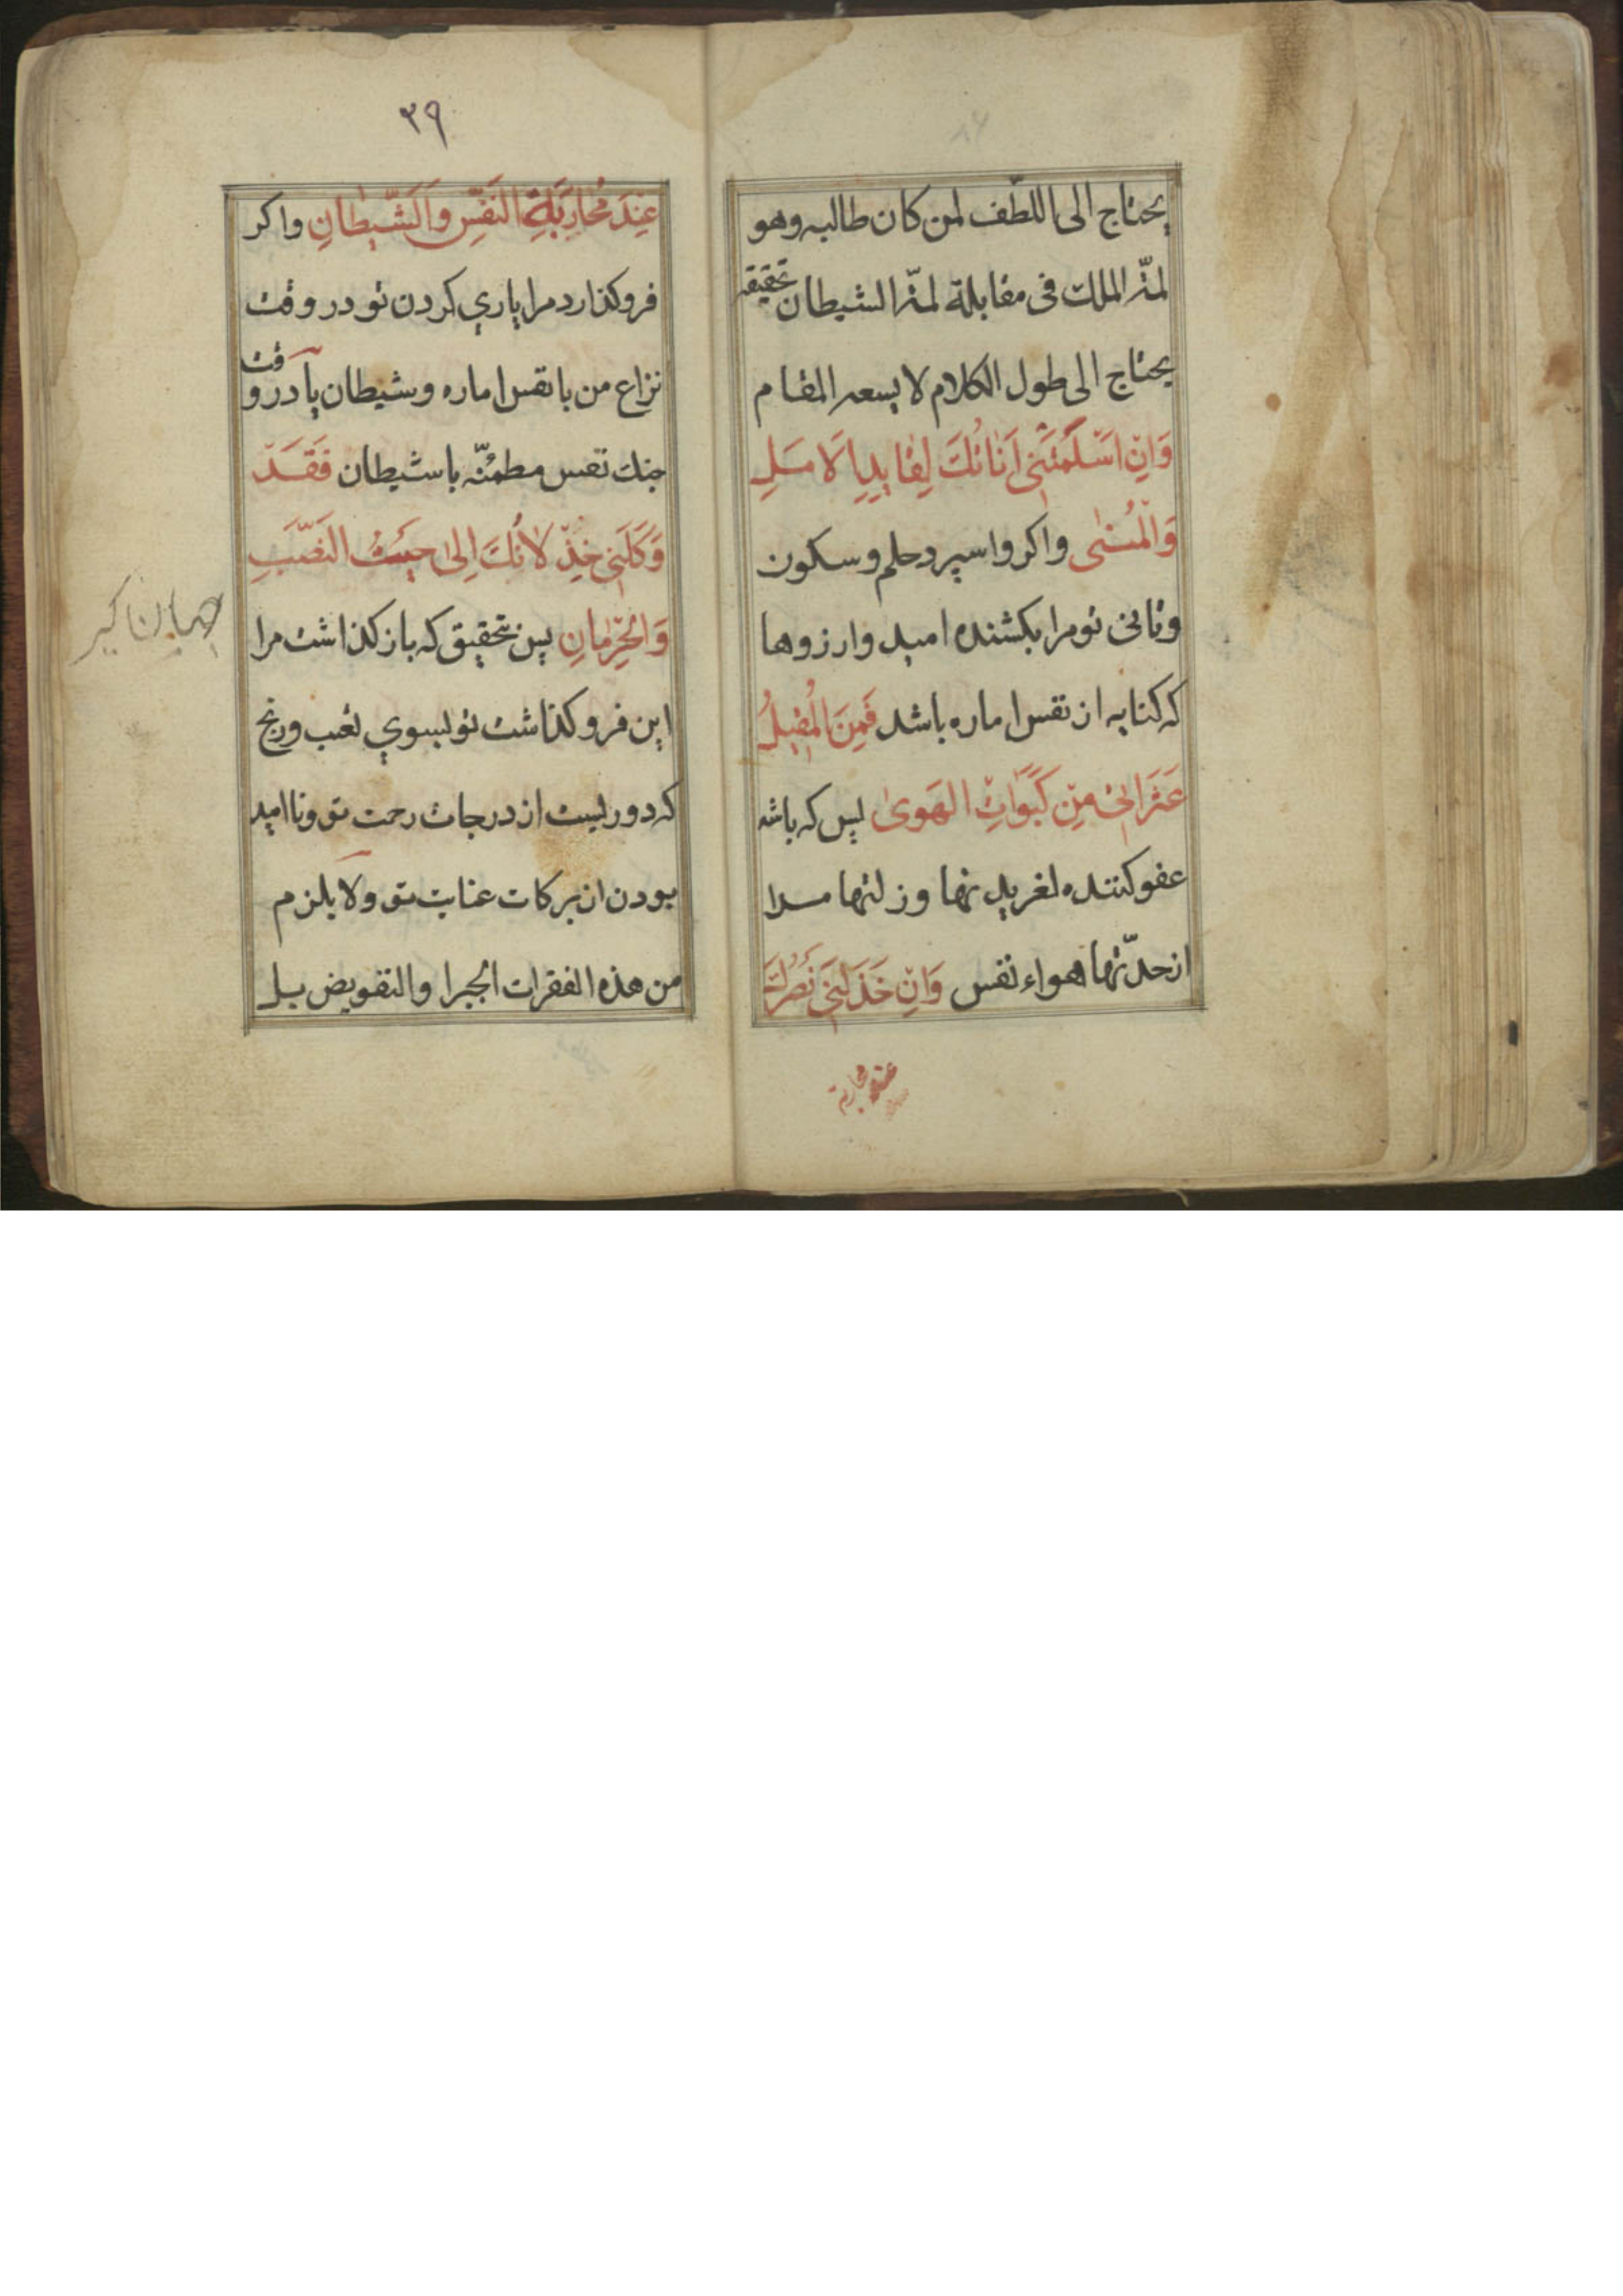 يحتاج الى اللطف لمن كان طالبه وهو
لمّة الملك فى مقابلة لمّة الشيطان تحقيقه
يحتاج الى طول الكلام لا يسعه المقام
وَاِنْ اَسْلَمَتْنى اَناتُكَ لِقايِدِ الاَمَلِ
وَالْمُنٰى واكر واسپرد حلم وسكون
وتانى تو مرا بكشنده اميد وارزوها
كه كنايه از نفس اماره باشد فَمَنِ الْمُقيلُ
عَثَراتى مِنْ كَبَواتِ الهَوىٰ پس كه باشد
عفو كننده لغزيدنها وزلتها مرا
از حدّتها هواء نفس وَاِنْ خَذَلَنى نَصْرُكَ
عند محاربة
٣٩
عِنْدَ مُحارَبَةِ النَفْسِ وَالشَّيْطانِ واكر
فرو كذارد مرا ياري كردن تو در وقت
نزاع من با نفس اماره وشيطان يا در وقت
جنك نفس مطمئنّه با شيطان فَقَدْ
وَكَلَنى خِذْلانُكَ اِلىٰ حَيْثُ النَصَبِ
وَالحِرْمانِ پس بتحقيق كه باز كذاشت مرا
اين فرو كذاشت تو بسوي تعب ورنج
كه دوريست از درجات رحمت تو ونا اميد
بودن از بركات عنايت تو ولا يلزم
من هذه الفقرات الجبر او التفويض بل